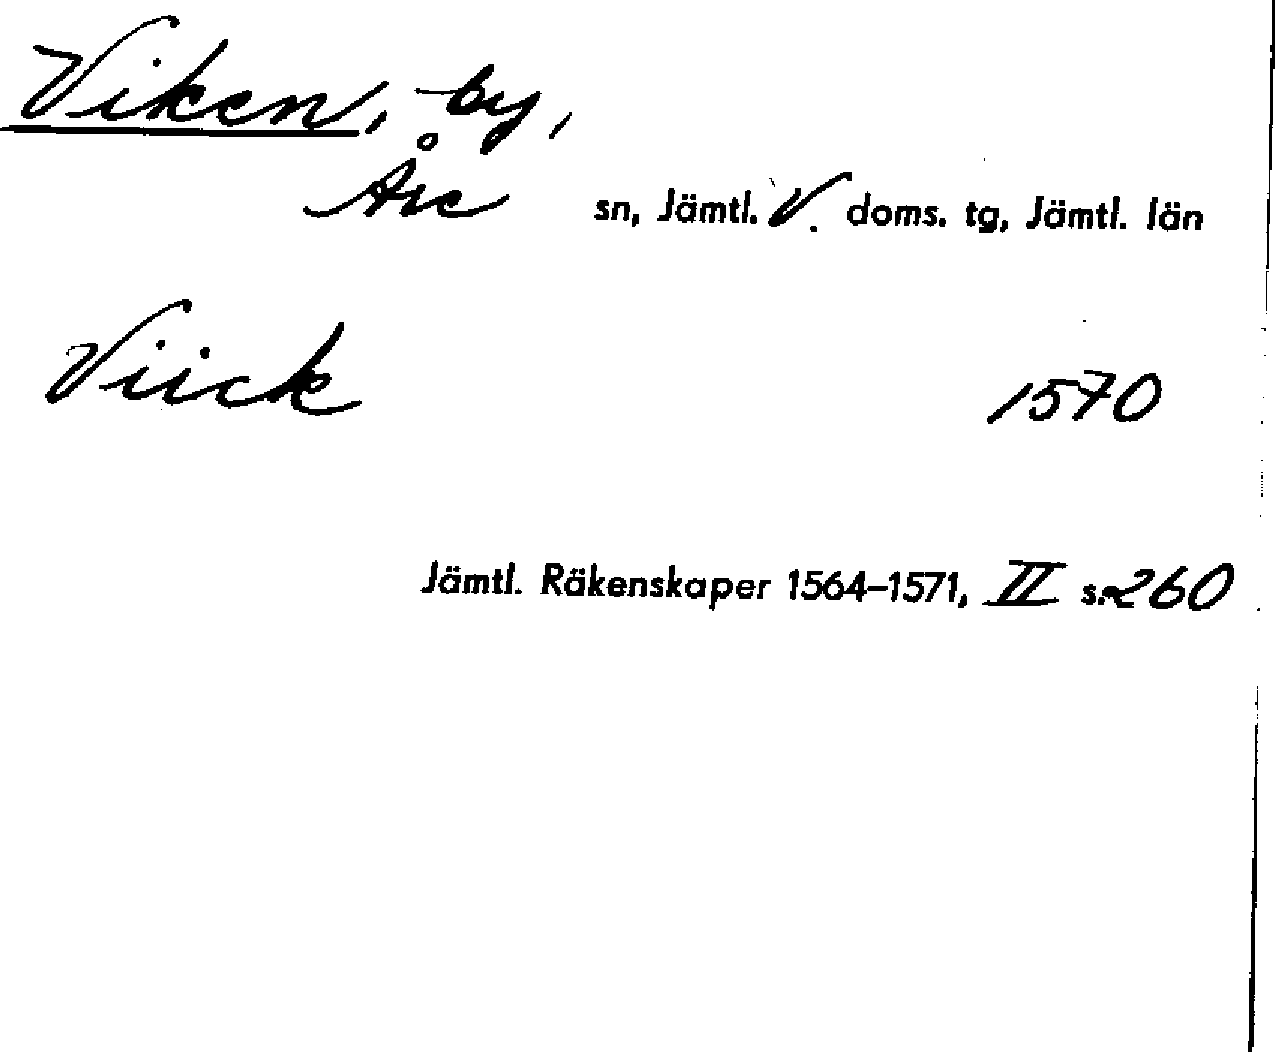 Viken, by,
Åre sn, Jämtl. V. doms. tg, Jämtl. län
Viick 1570
Jämtl. Räkenskaper 1564–1571, II s. 260